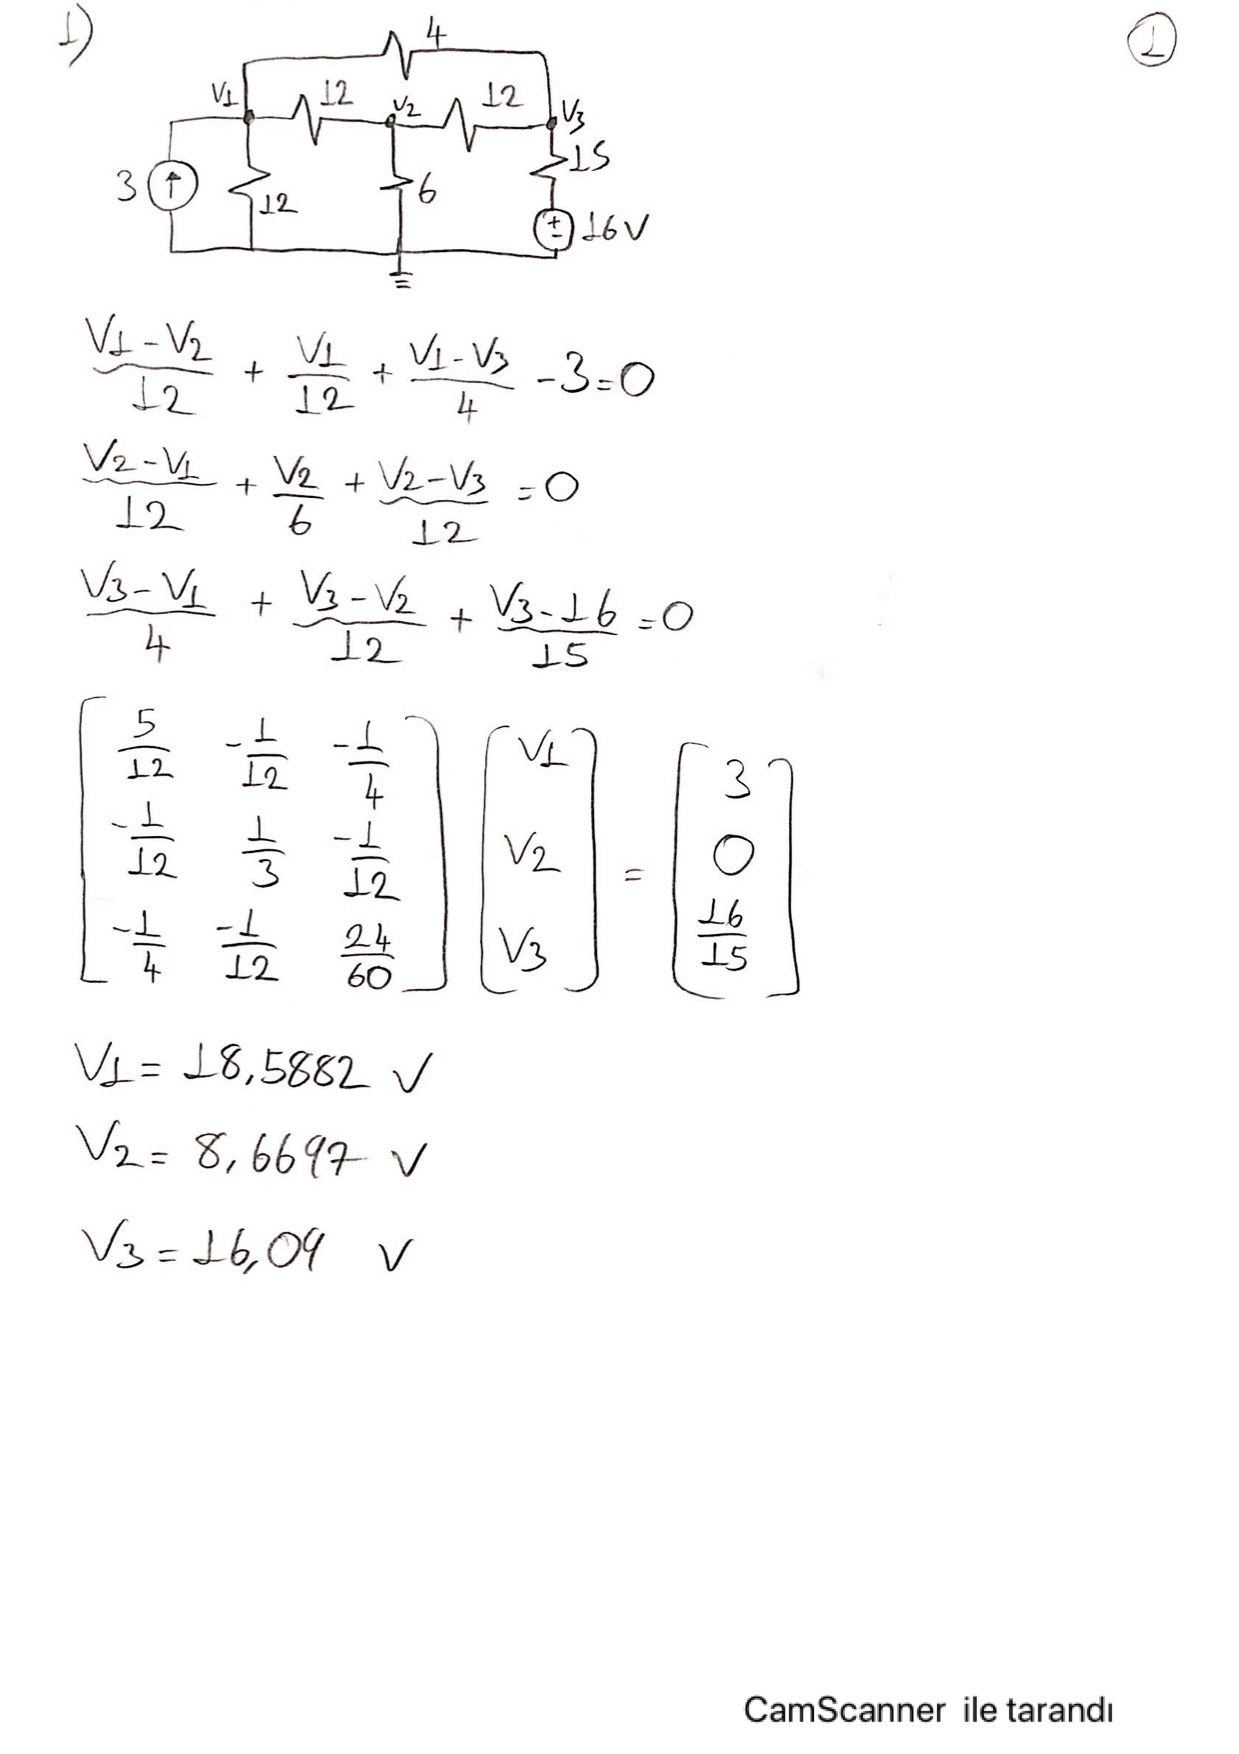 1) ①
4
V1 12 V2 12 V3
15
3 12 6
16V
V1-V2/12 + V1/12 + V1-V3/4 -3=0
V2-V1/12 + V2/6 + V2-V3/12 =0
V3-V1/4 + V3-V2/12 + V3-16/15 =0
[5/12 -1/12 -1/4] [V1] [3]
[-1/12 1/3 -1/12] [V2] = [0]
[-1/4 -1/12 24/60] [V3] [16/15]
V1= 18,5882 V
V2= 8,6697 V
V3= 16,09 V
CamScanner ile tarandı